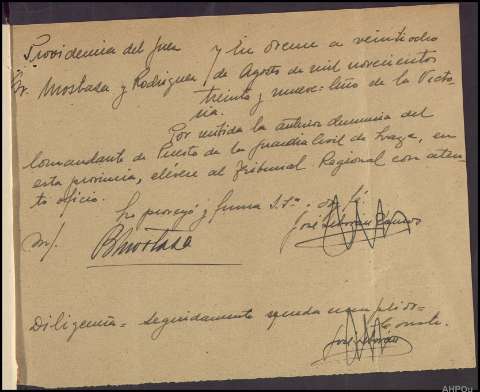 Providencia del Juez
Sr. Mostaza y Rodriguez
y En Orense a veintiocho
de Agosto de mil novecientos
treinta y nueve: Año de la Victo-
ria.
Por recibida la anterior denuncia del
Comandante de Puesto de la Guardia Civil de en
esta provincia, elévese al Tribunal Regional con aten-
to oficio.
Lo proveyó y firma S.Sª. doy fé
M/. BMostaza
José
Diligencia = Seguidamente queda cumplido-
José
AHPOu